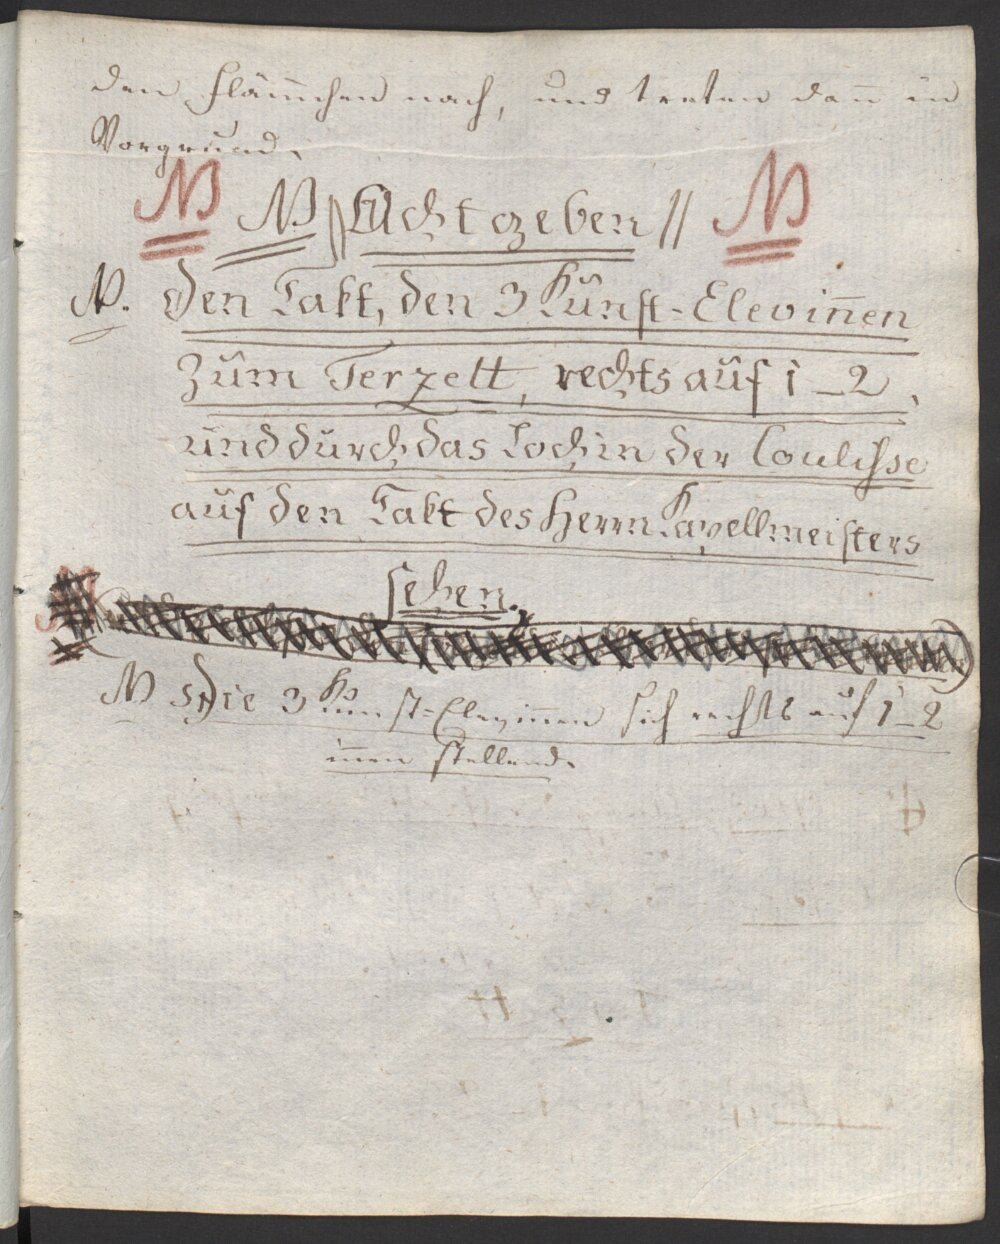 den Flämchen nach, und treten dan̅ in
Vorgrund.
NB NB || Acht geben || NB
NB. den Takt, den 3 Kunst-Elevin̅en
Zum Terzett, rechts auf 1–2,
und durch das Loch in der Coulisse
auf den Takt des Herrn Kapellmeisters
sehen.
NB Die 3 Kunst-Elevinnen sich rechts auf 1–2
innen stellend.